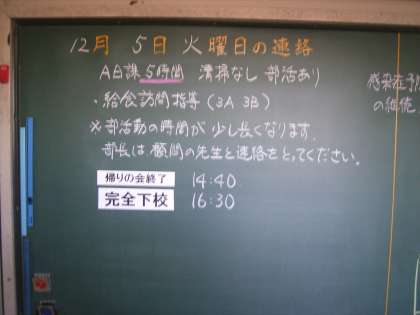 12月 5日 火曜日の連絡
A日課 5時間 清掃なし 部活あり
・給食訪問指導(3A 3B)
※部活動の時間が少し長くなります.
部長は顧問の先生と連絡をとってください。
帰りの会終了 14:40
完全下校 16:30
感染症予防
の継続